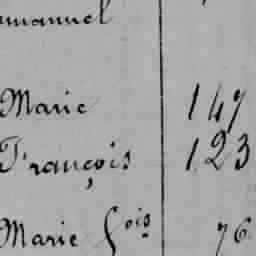 mmanuel
Marie 147
François 123
Marie Çois 76